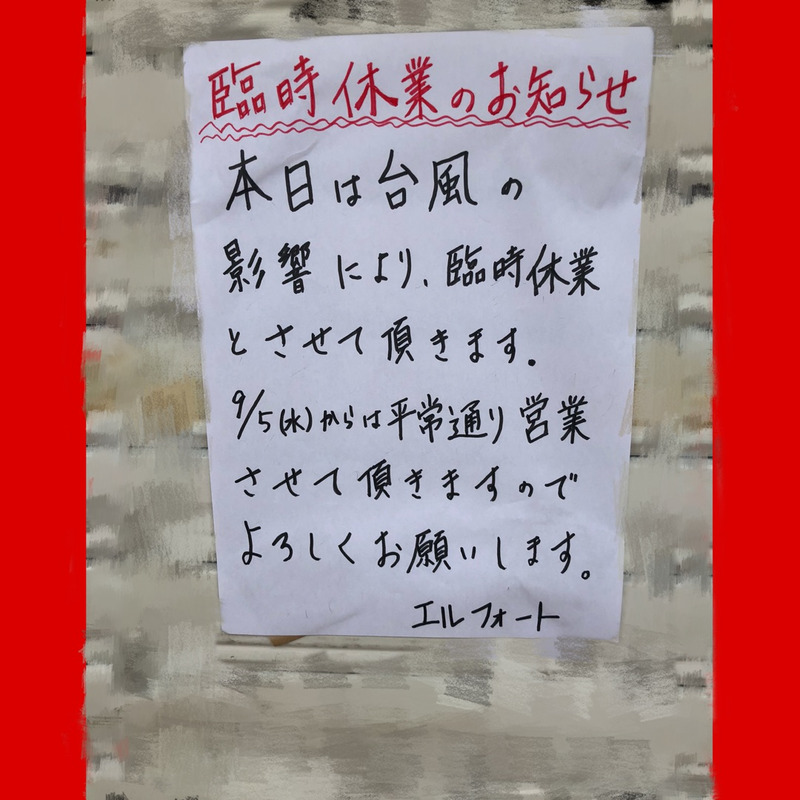 臨時休業のお知らせ
本日は台風の
影響により、臨時休業
とさせて頂きます。
9/5(水)からは平常通り営業
させて頂きますので
よろしくお願いします。
エルフォート